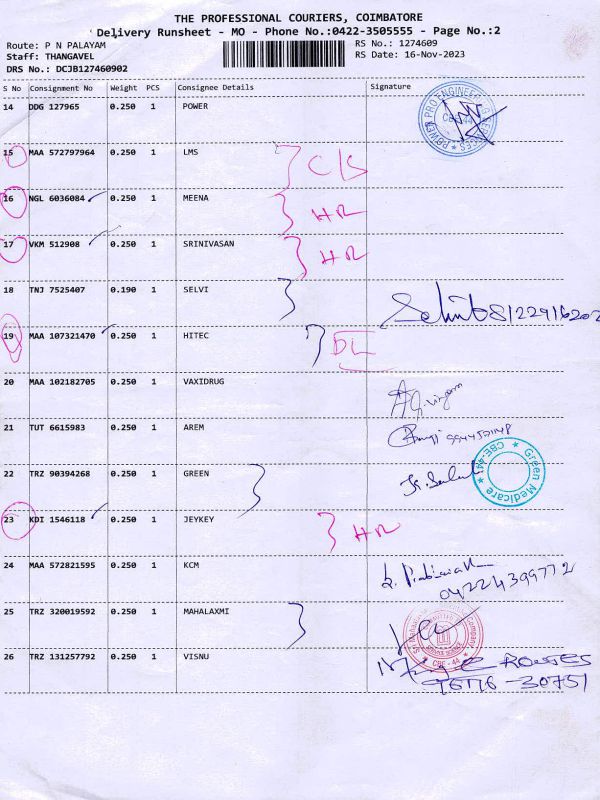 THE PROFESSIONAL COURIERS, COIMBATORE
Delivery Runsheet - MO - Phone No.:0422-3505555 - Page No.:2
Route: P N PALAYAM
RS No.: 1274609
Staff: THANGAVEL
RS Date: 16-Nov-2023
DRS No.: DCJB127460902
S No Consignment No Weight PCS Consignee Details Signature
14 DDG 127965 0.250 1 POWER
POWER PRO ENGINEERING
15 MAA 572797964 0.250 1 LMS C/S
16 NGL 6036084 0.250 1 MEENA HR
17 VKM 512908 0.250 1 SRINIVASAN HR
18 TNJ 7525407 0.190 1 SELVI
19 MAA 107321470 0.250 1 HITEC DL
20 MAA 102182705 0.250 1 VAXIDRUG
21 TUT 6615983 0.250 1 AREM
22 TRZ 90394268 0.250 1 GREEN
Green Medicare CBE-44
23 KDI 1546118 0.250 1 JEYKEY HR
24 MAA 572821595 0.250 1 KCM
04224399772
25 TRZ 320019592 0.250 1 MAHALAXMI
CBE - 44
26 TRZ 131257792 0.250 1 VISNU